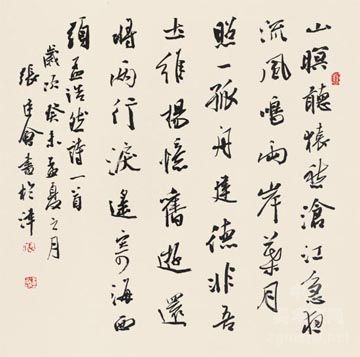 山暝聽猿愁滄江急夜
流風鳴兩岸葉月
照一孤舟建德非吾
土維揚憶舊遊還
將兩行淚遙寄海西
頭孟浩然詩一首
歲次癸未孟夏之月
張建會書於津